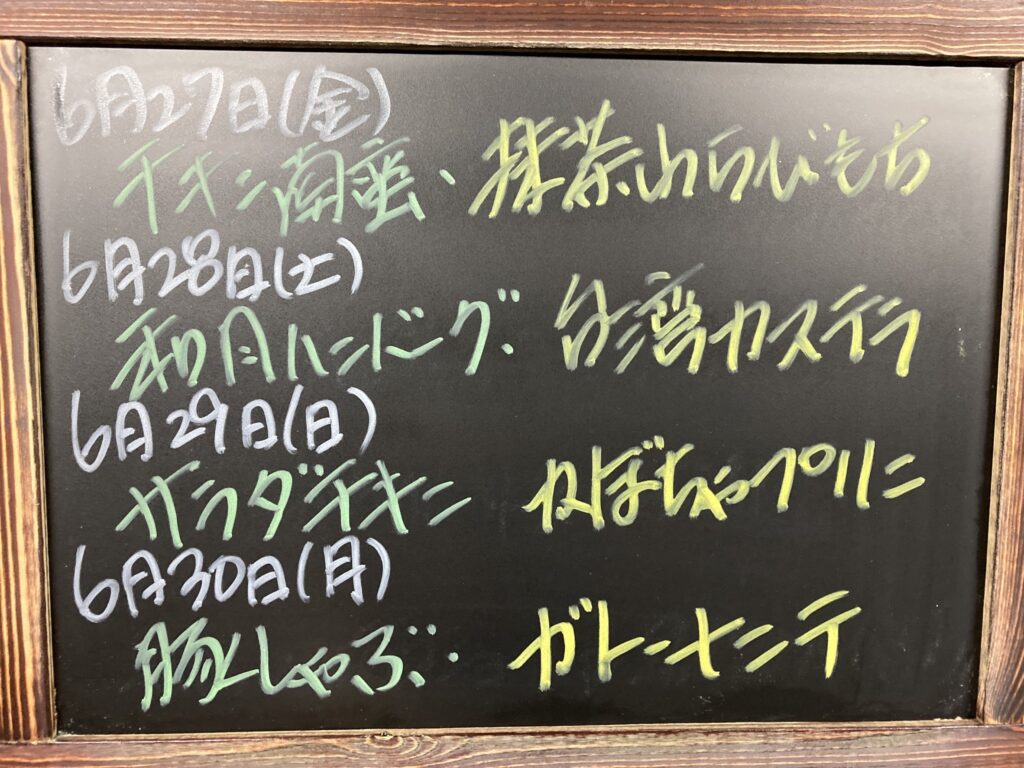 6月27日(金)
チキン南蛮、抹茶わらびもち
6月28日(土)
和風ハンバーグ、台湾カステラ
6月29日(日)
サラダチキン かぼちゃプリン
6月30日(月)
豚しゃぶ・ ガトーナンテ